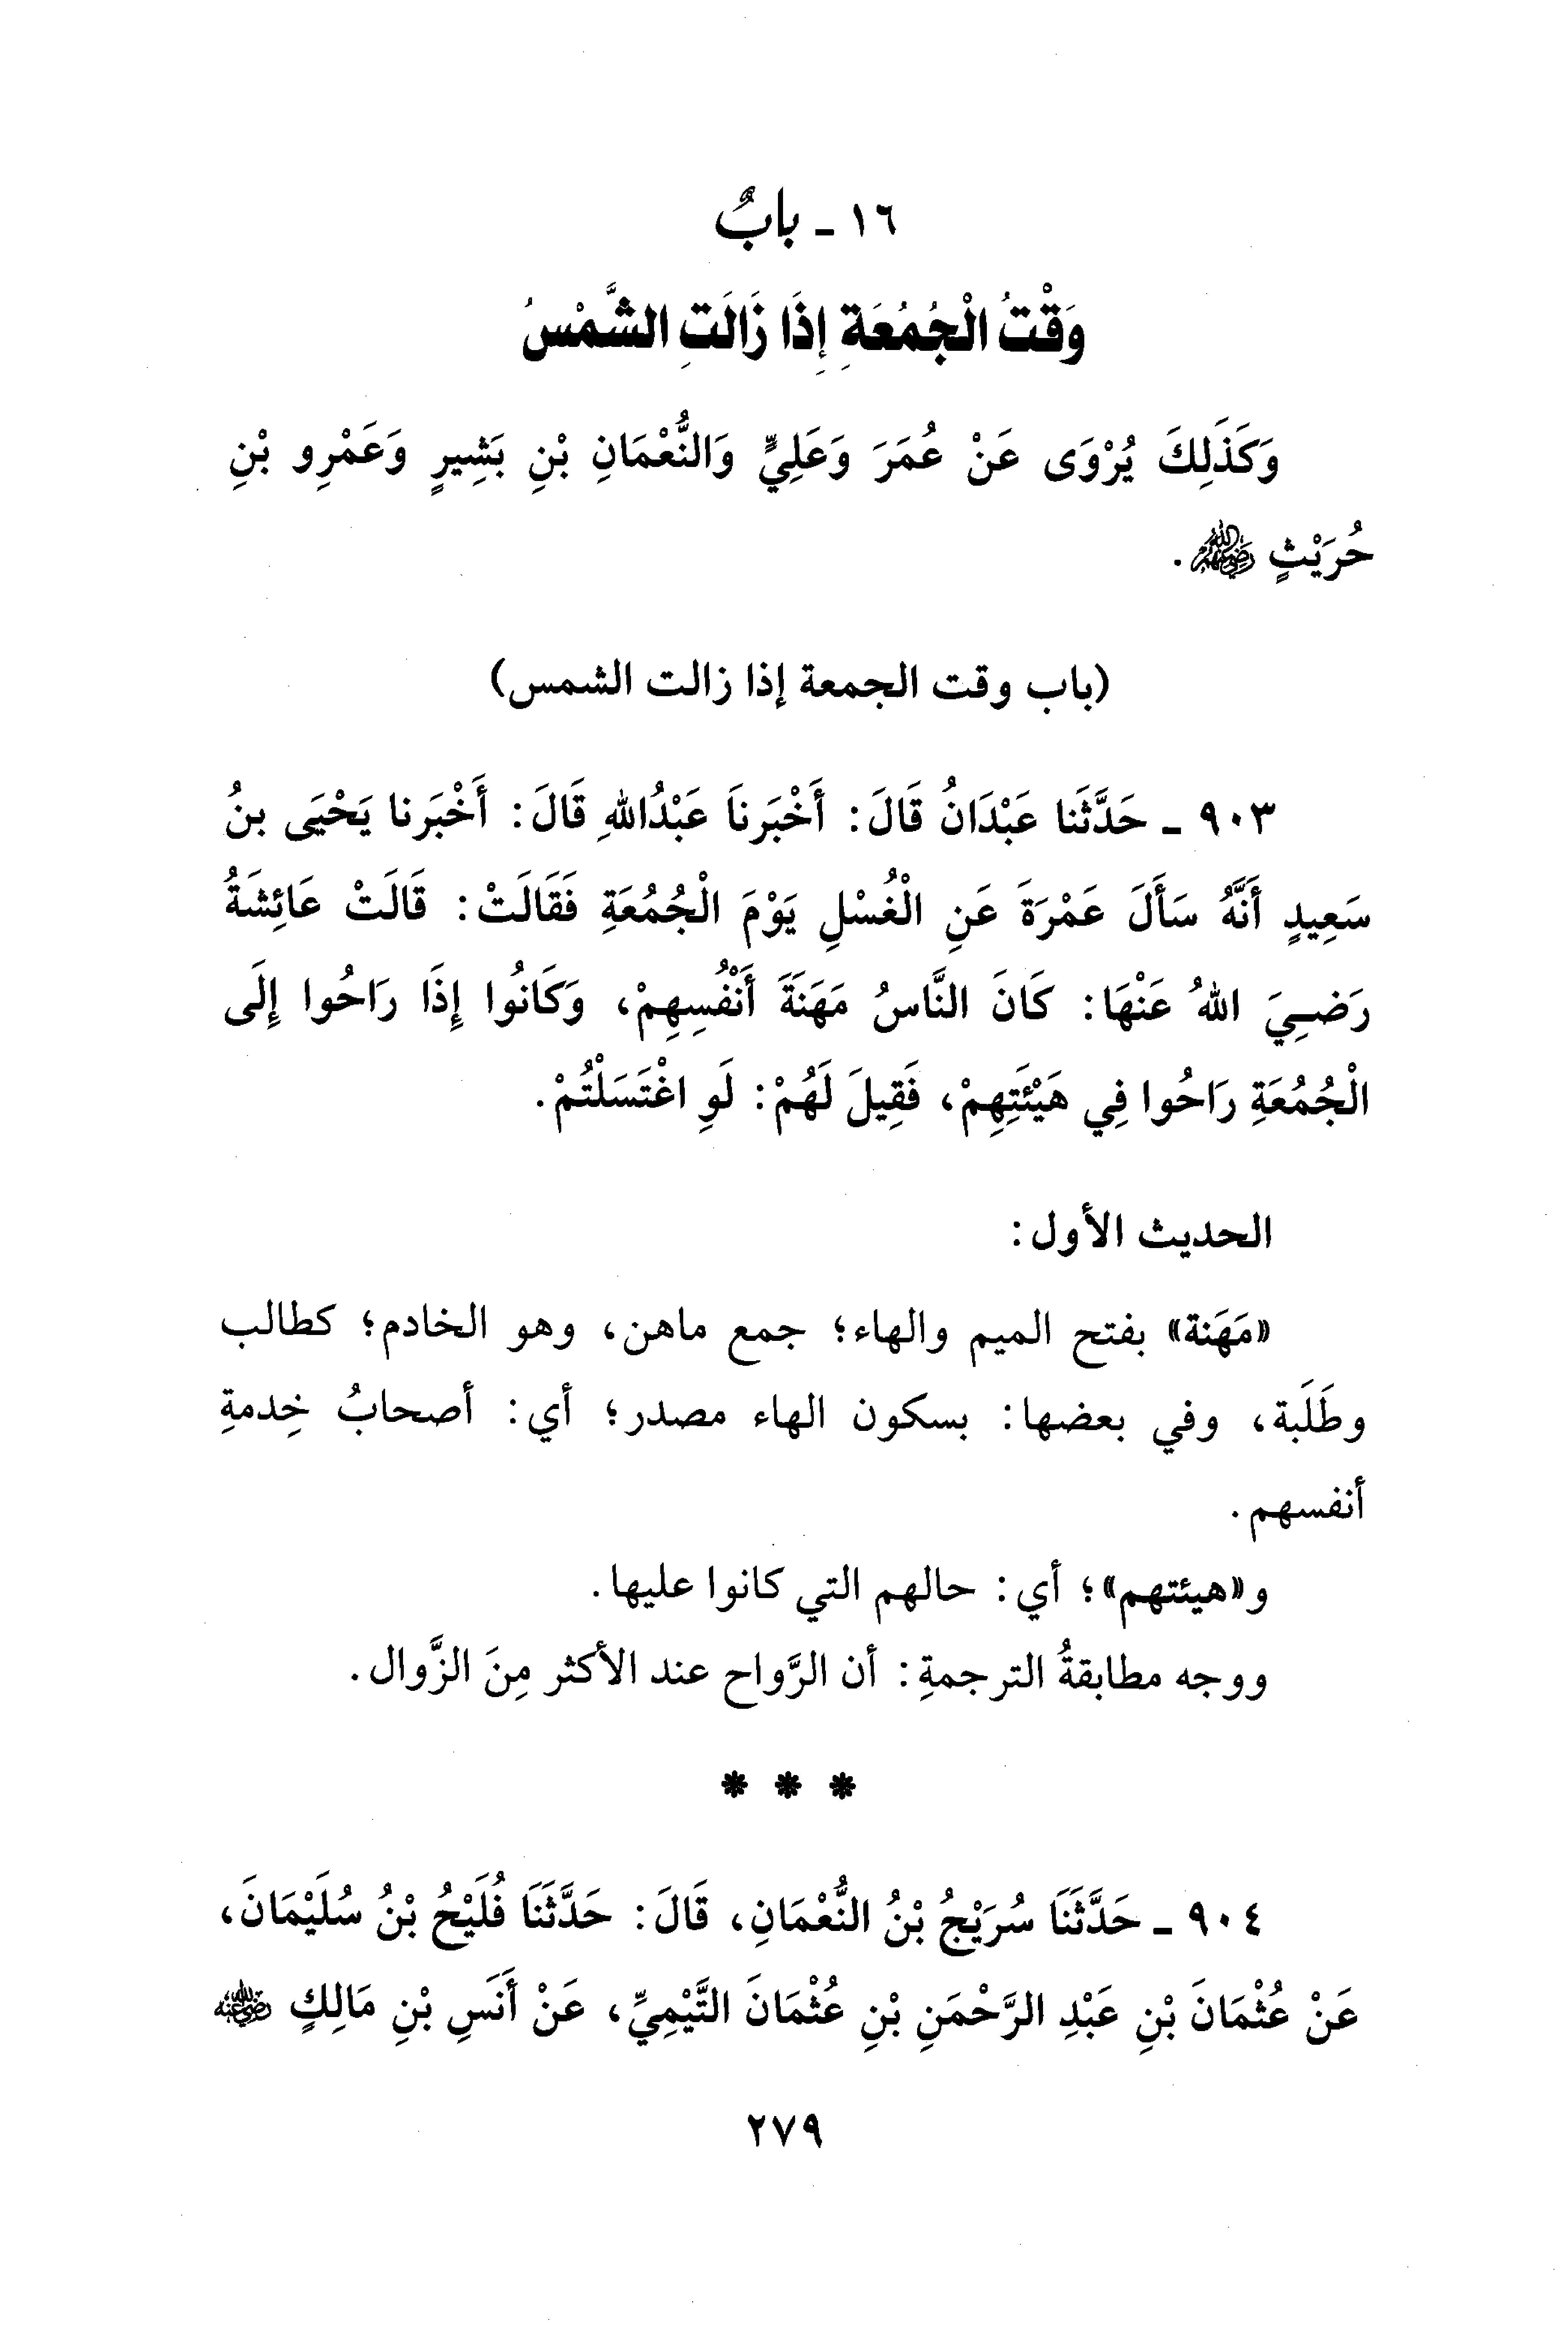 ١٦ - بابٌ
وَقْتُ الْجُمُعَةِ إِذَا زَالَتِ الشَّمْسُ
وَكَذَلِكَ يُرْوَى عَنْ عُمَرَ وَعَلِيٍّ وَالنُّعْمَانِ بْنِ بَشِيرٍ وَعَمْرِو بْنِ
حُرَيْثٍ رضي الله عنهم.
(باب وقت الجمعة إذا زالت الشمس)
٩٠٣ - حَدَّثَنا عَبْدَانُ قَالَ: أَخْبَرناَ عَبْدُاللهِ قَالَ: أَخْبَرنا يَحْيَى بنُ
سَعِيدٍ أَنَّهُ سَأَلَ عَمْرَةَ عَنِ الْغُسْلِ يَوْمَ الْجُمُعَةِ فَقَالَتْ: قَالَتْ عَائِشَةُ
رَضِيَ اللهُ عَنْهَا: كَانَ النَّاسُ مَهَنَةَ أَنْفُسِهِمْ، وَكَانُوا إِذَا رَاحُوا إِلَى
الْجُمُعَةِ رَاحُوا فِي هَيْئَتِهِمْ، فَقِيلَ لَهُمْ: لَوِ اغْتَسَلْتُمْ.
الحديث الأول:
«مَهَنة» بفتح الميم والهاء؛ جمع ماهن، وهو الخادم؛ كطالب
وطَلَبة، وفي بعضها: بسكون الهاء مصدر؛ أي: أصحابُ خِدمةِ
أنفسهم.
و«هيئتهم»؛ أي: حالهم التي كانوا عليها.
ووجه مطابقةُ الترجمةِ: أن الرَّواح عند الأكثر مِنَ الزَّوال.
* * *
٩٠٤ - حَدَّثَنَا سُرَيْجُ بْنُ النُّعْمَانِ، قَالَ: حَدَّثَنَا فُلَيْحُ بْنُ سُلَيْمَانَ،
عَنْ عُثْمَانَ بْنِ عَبْدِ الرَّحْمَنِ بْنِ عُثْمَانَ التَّيْمِيِّ، عَنْ أَنَسِ بْنِ مَالِكٍ رضي الله عنه
٢٧٩